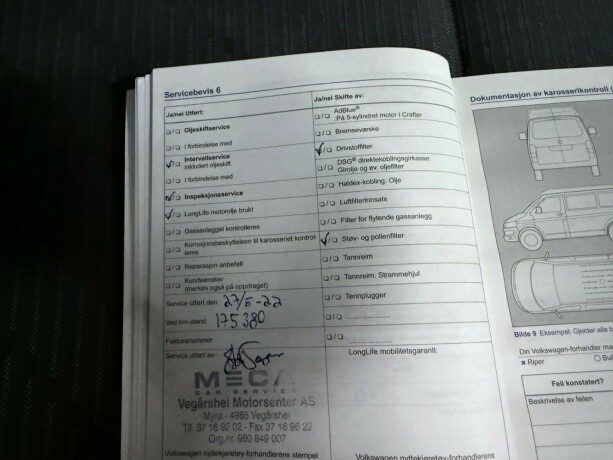 Servicebevis 6
Ja/nei Utført:
Oljeskiftservice
I forbindelse med
Intervallservice
inkludert oljeskift
I forbindelse med
Inspeksjonsservice
LongLife motorolje brukt
Gassanlegget kontrolleres
Korrosjonsbeskyttelsen til karosseriet kontrol-
leres
Reparasjon anbefalt
Kundeønsker
(merkes også på oppdraget)
Service utført den: 27/5-22
Ved km-stand: 175380
Fakturanummer
Service utført av:
MECA
CAR SERVICE
Vegårshei Motorsenter AS
Myra - 4985 Vegårshei
Tlf. 37 16 92 02 - Fax 37 16 96 22
Org.nr. 980 849 007
Volkswagen nyttekjøretøy-forhandlerens stempel
Ja/nei Skifte av:
AdBlue®
:På 5-sylindret motor i Crafter
Bremsevæske
Drivstoffilter
DSG® direktekoblingsgirkasse:
Girolje og ev. oljefilter
Haldex-kobling: Olje
Luftfilterinnsats
Filter for flytende gassanlegg
Støv- og pollenfilter
Tannreim
Tannreim: Strammehjul
Tennplugger
LongLife mobilitetsgaranti:
Volkswagen nyttekjøretøy-forhandlerens
Dokumentasjon av karosserikontroll
Bilde 9 Eksempel: Gjelder alle
Din Volkswagen-forhandler
Riper
Feil konstatert?
Beskrivelse av feilen